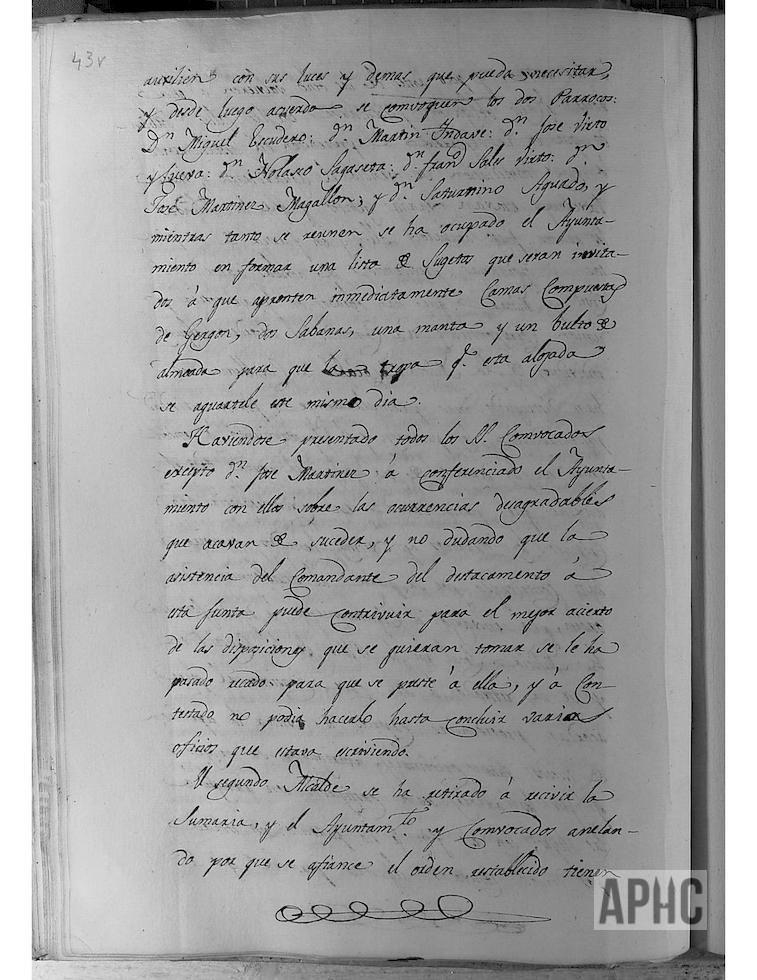 43v
auxilien con sus luces y demas que pueda necesitar,
y desde luego acuerdo se convoquen los dos Parrocos:
Dn Miguel Escudero: dn Martin Yndave: dn Jose Visto
y Cueva: dn Nolasco Sagaseta: dn Franco Sales Visto: dn
José Martinez Magallon; y dn Saturnino Aguado, y
mientras tanto se reunen se ha ocupado el Ayunta-
miento en formar una lista de Sugetos que seran invita-
dos á que apronten inmediatamente Camas Compuestas
de Gergon, dos Sabanas, una manta y un bulto de
almoada para que la tropa q.e esta alojada
se aquartele este mismo dia.
Haviendose presentado todos los SS. Convocados
excepto dn Jose Martinez á conferenciado el Ayunta-
miento con ellos sobre las ocurrencias desagradables
que acavan de suceder, y no dudando que la
asistencia del Comandante del destacamento á
esta Junta puede contrivuir para el mejor acierto
de las disposiciones que se quieran tomar se le ha
pasado recado para que se preste á ella, y á Con-
testado no podia hacerlo hasta concluir varios
oficios que estava escriviendo.
El segundo Alcalde se ha retirado á recivir la
Sumaria, y el Ayuntam.to y Convocados anelan-
do por que se afiance el orden restablecido tienen
APHC